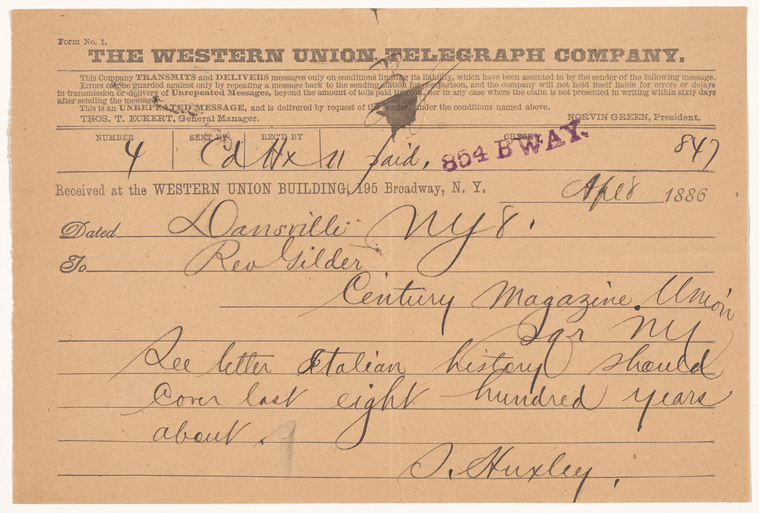 Form No. 1.
THE WESTERN UNION TELEGRAPH COMPANY.
This Company TRANSMITS and DELIVERS messages only on conditions limiting its liability, which have been assented to by the sender of the following message.
Errors can be guarded against only by repeating a message back to the sending station for comparison, and the company will not hold itself liable for errors or delays
in transmission or delivery of Unrepeated Messages, beyond the amount of tolls paid thereon, nor in any case where the claim is not presented in writing within sixty days
after sending the message.
This is an UNREPEATED MESSAGE, and is delivered by request of the sender, under the conditions named above.
THOS. T. ECKERT, General Manager. NORVIN GREEN, President.
NUMBER SENT BY REC'D BY CHECK
4 Cd Hx 11 paid. 854 BWAY. 847
Received at the WESTERN UNION BUILDING, 195 Broadway, N. Y. Apl 8 1886
Dated Dansville NY 8.
To Rev Gilder
Century Magazine. Union
Sqr NY
See letter Italian history should
cover last eight hundred years
about.
S. Huxley.